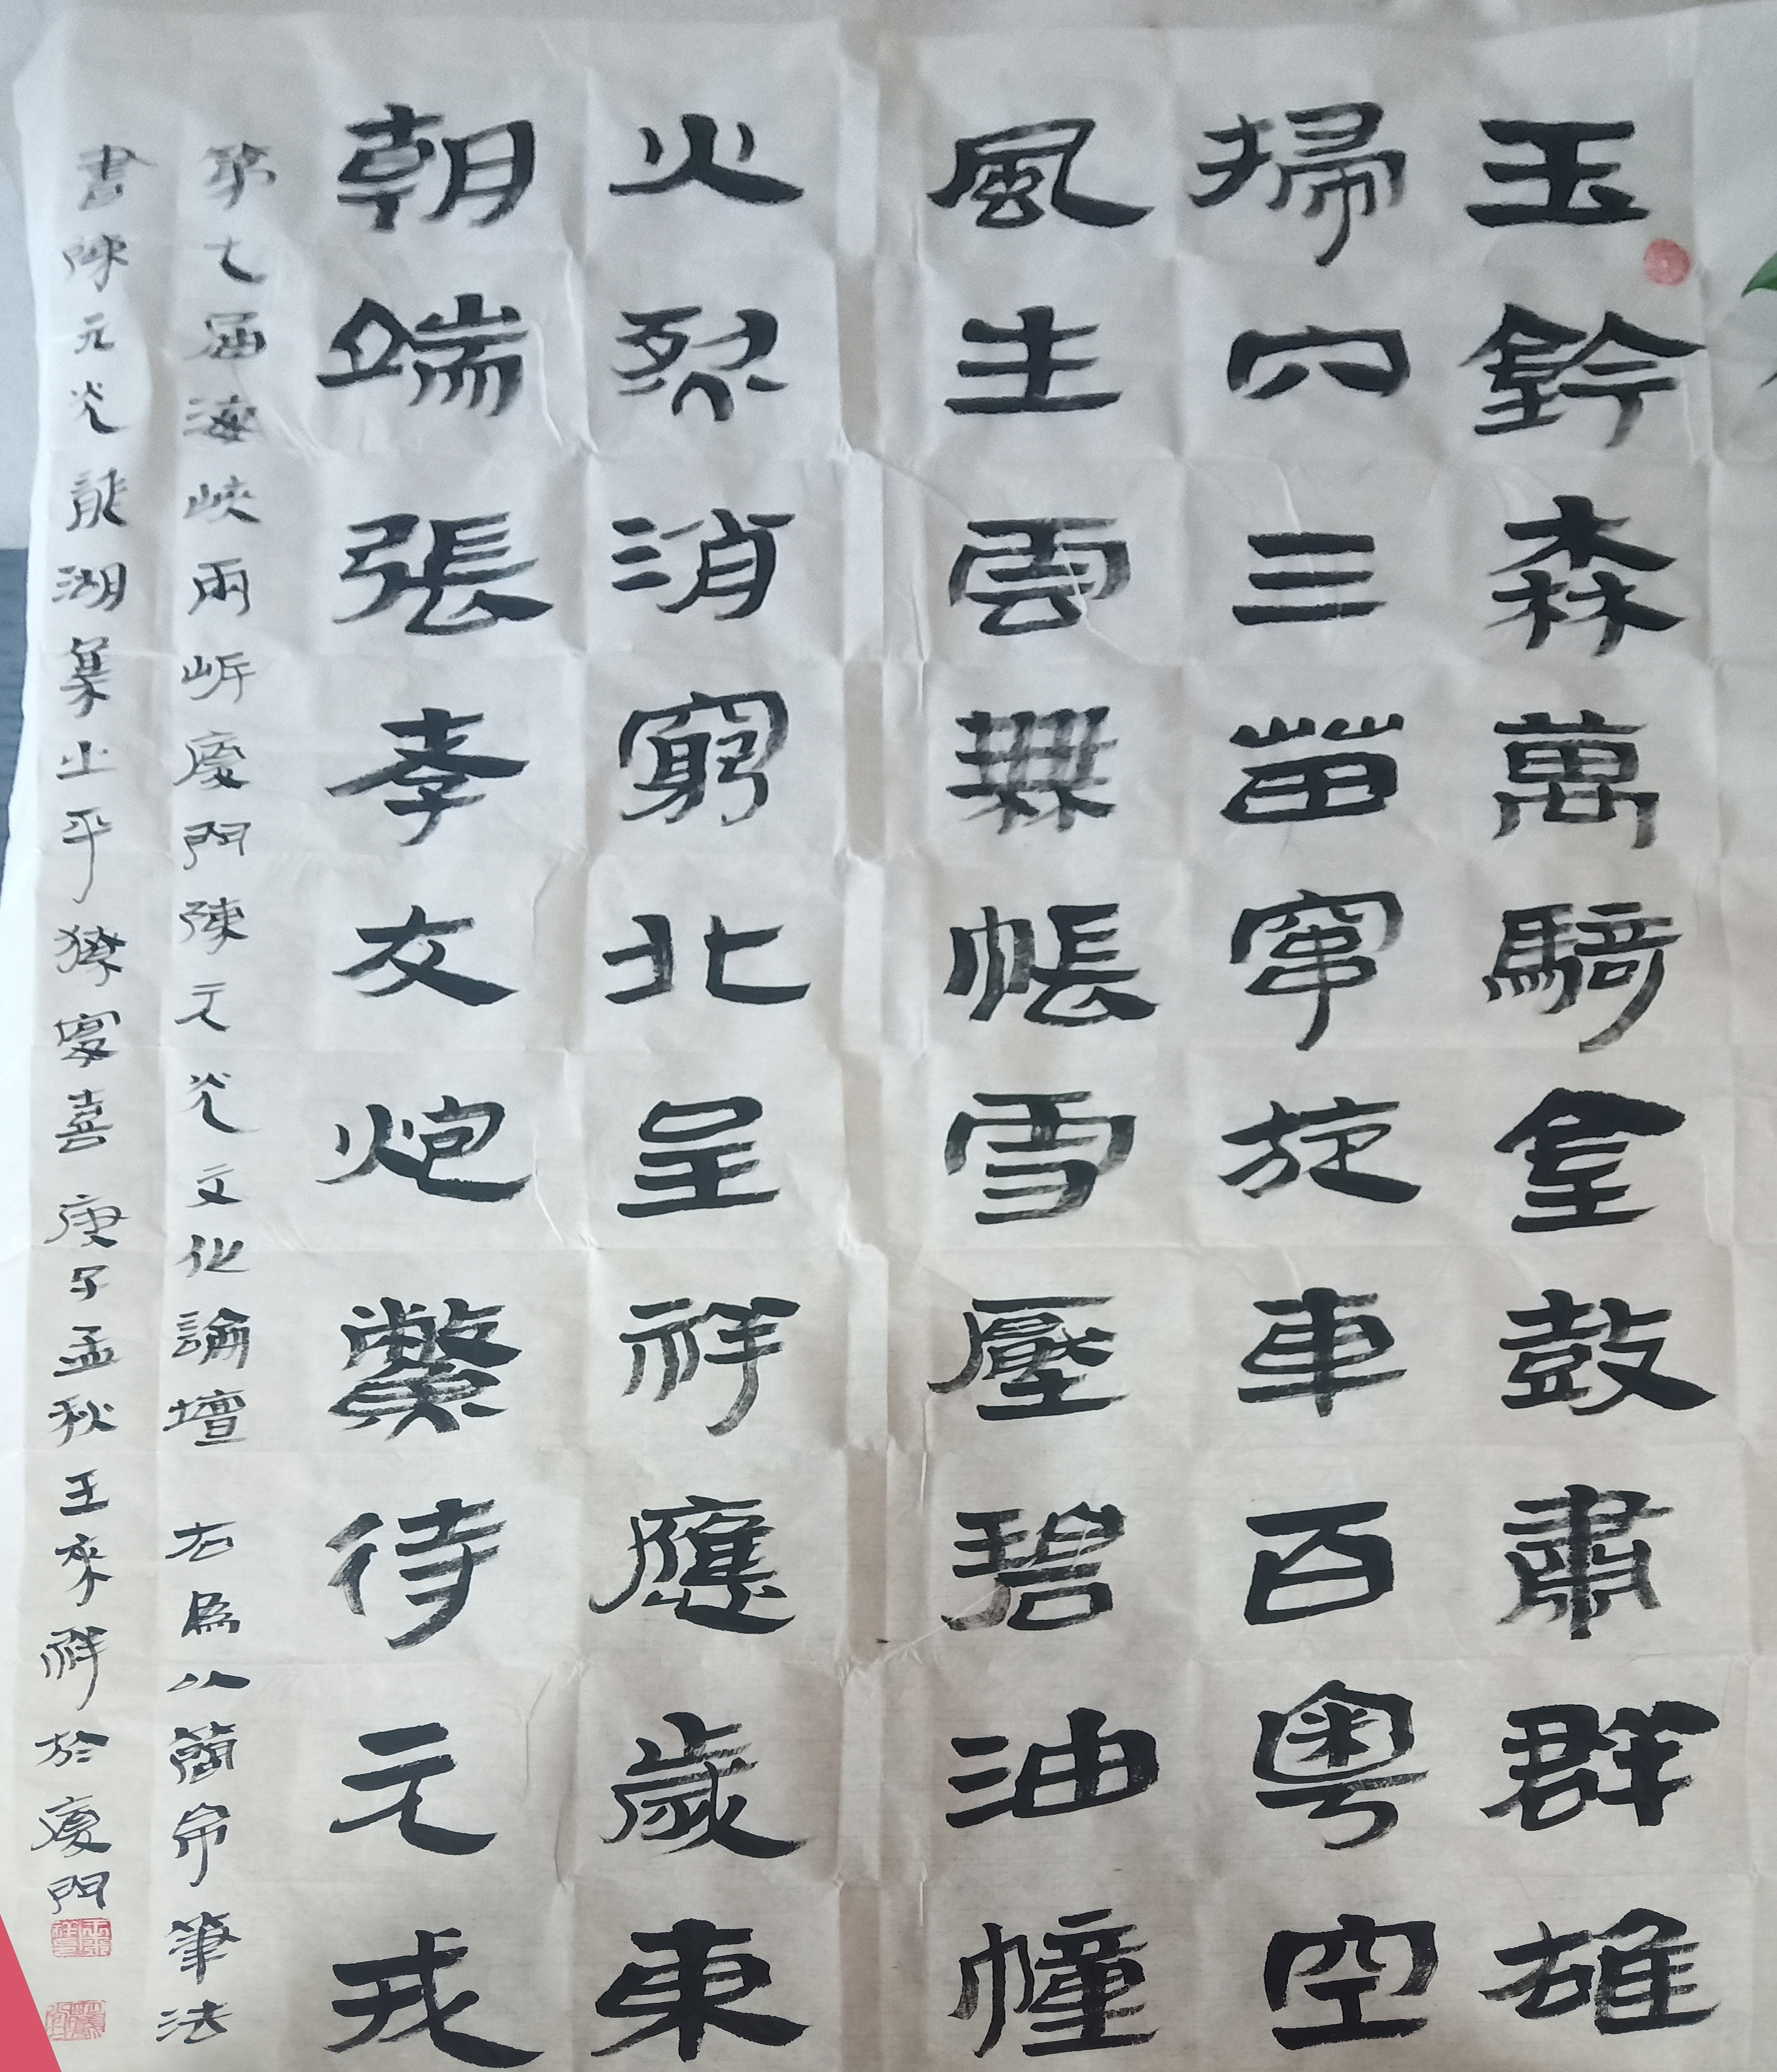 玉鈐森萬騎金鼓肅群雄
掃穴三苗窜旋車百粤空
風生雲無帳雪壓碧油幢
火烈消窮北呈祥應歲東
朝端張孝友炮鱉待元戎
第七屆海峽兩岸廈門陳元光文化論壇 右為以簡帛筆法
書陳元光龍湖集之平獠宴喜 庚子孟秋 王來祥於廈門